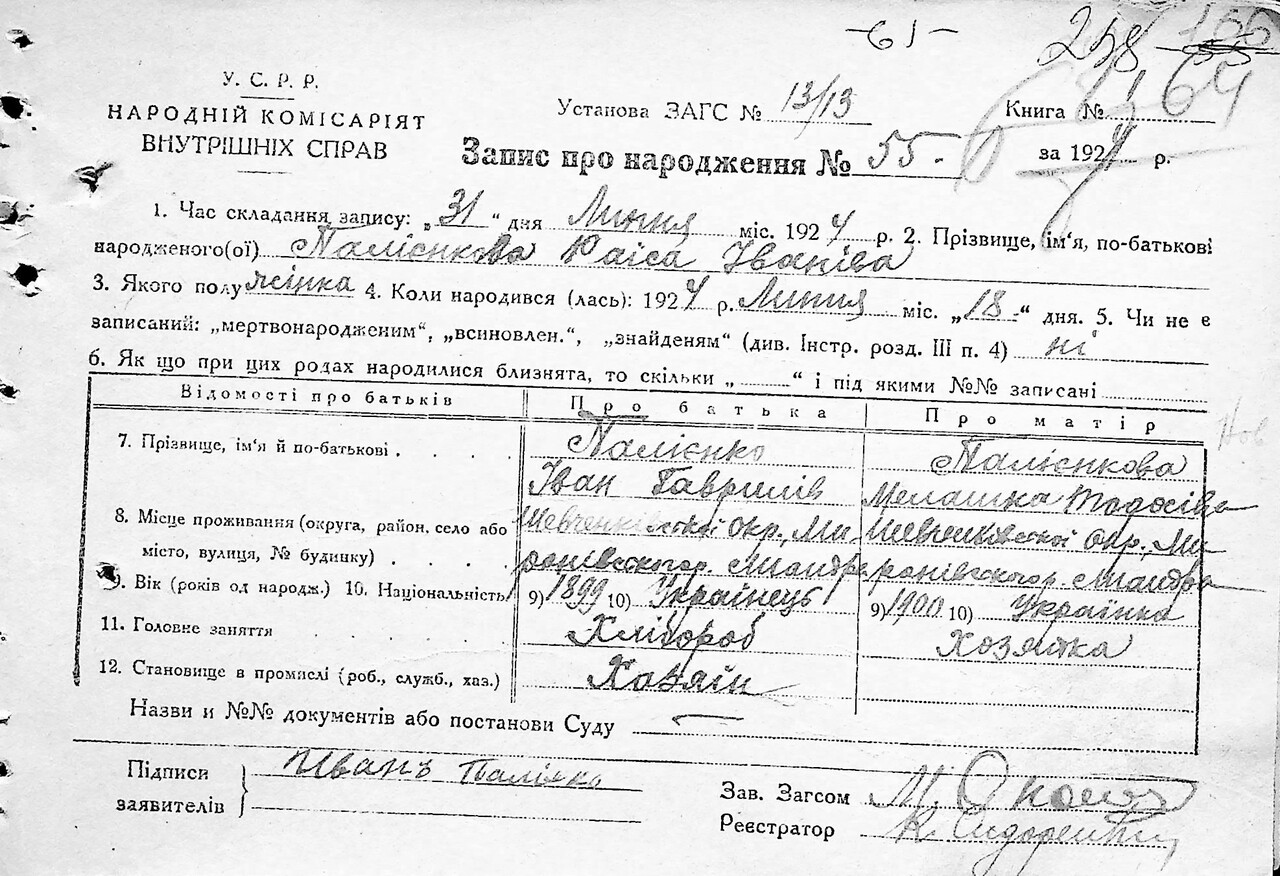 -61-
258
У. С. Р. Р.
НАРОДНІЙ КОМІСАРІЯТ
ВНУТРІШНІХ СПРАВ
Установа ЗАГС № 13/13
Книга № 1 64
Запис про народження № 55. за 1924 р.
1. Час складання запису: „31“ дня Липня міс. 1924 р. 2. Прізвище, ім‘я, по-батькові
народженого(ої) Палієнкова Раїса Іванівa
3. Якого полу жінка 4. Коли народився (лась): 1924 р. Липня міс. „18“ дня. 5. Чи не є
записаний: „мертвонародженим“, „всиновлен.“, „знайденям“ (див. Інстр. розд. III п. 4) ні
6. Як що при цих родах народилися близнята, то скільки „ “ і під якими №№ записані
Відомості про батьків Про батька Про матір
7. Прізвище, ім‘я й по-батькові Палієнко Палієнкова
Іван Гаврилів Мелашка Тодосіва
8. Місце проживання (округа, район, село або Шевченківської окр., Ми Шевченківської окр., Ми
місто, вулиця, № будинку) ронівськогор.
9. Вік (років од народж.) 10. Національність 9) 1899 10) Українець 9) 1900 10) Українка
11. Головне заняття Хлібороб Хозяйка
12. Становище в промислі (роб., служб., хаз.) Хазяїн
Назви и №№ документів або постанови Суду —
Підписи Иванъ
заявителів
Зав. Загсом М.
Реєстратор К.